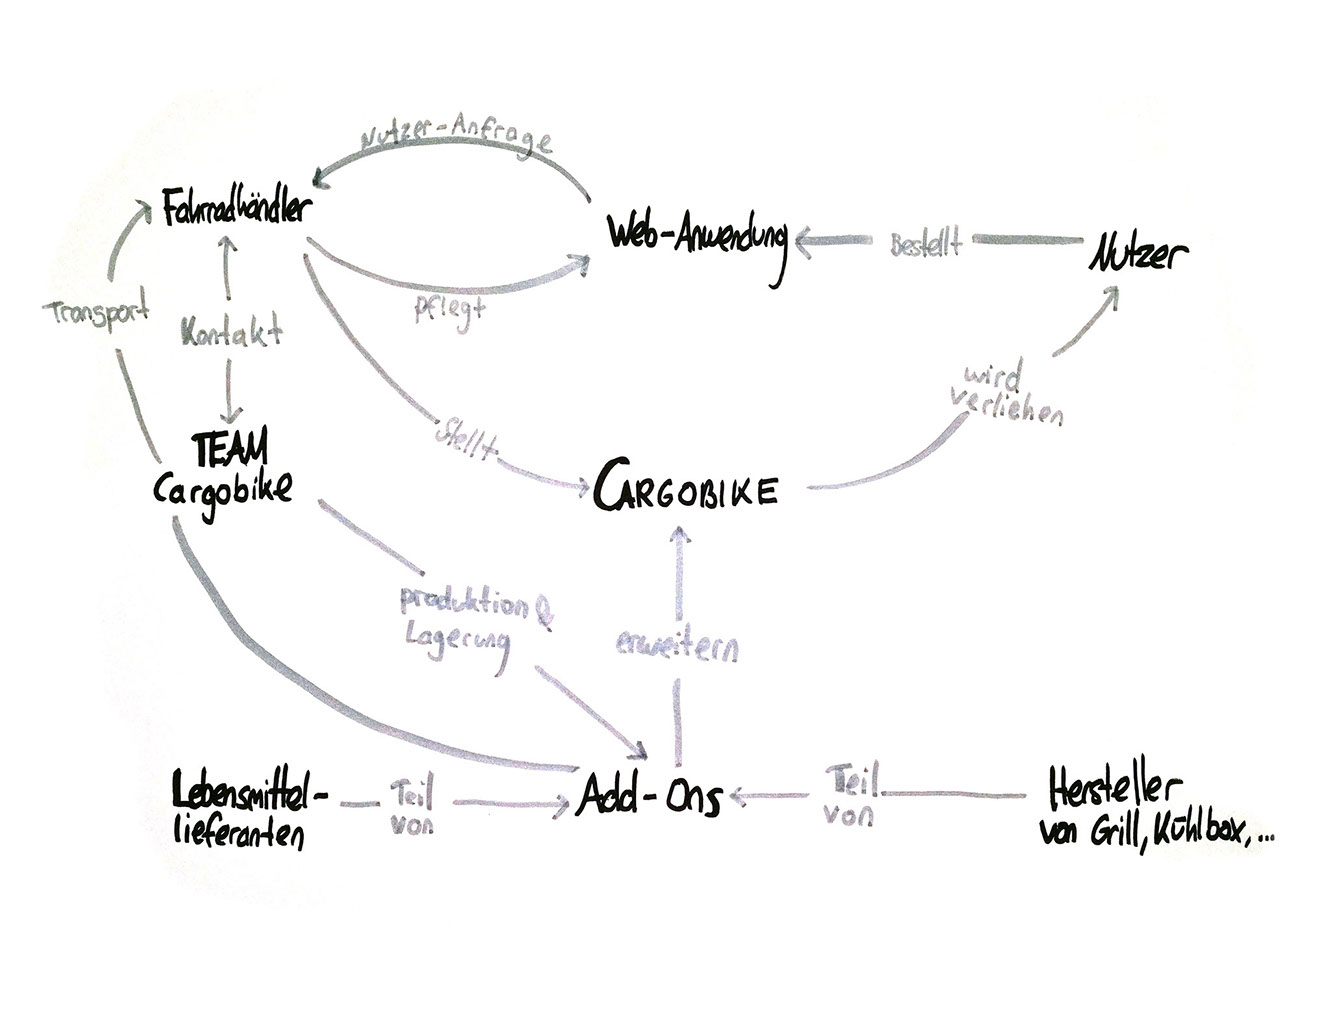 Nutzer-Anfrage
Fahrradhändler
Web-Anwendung
Bestellt
Nutzer
Transport
Kontakt
pflegt
wird
verliehen
Stellt
TEAM
Cargobike
CARGOBIKE
produktion &
Lagerung
erweitern
Lebensmittel-
lieferanten
Teil
von
Add-Ons
Teil
von
Hersteller
von Grill, Kühlbox, ...